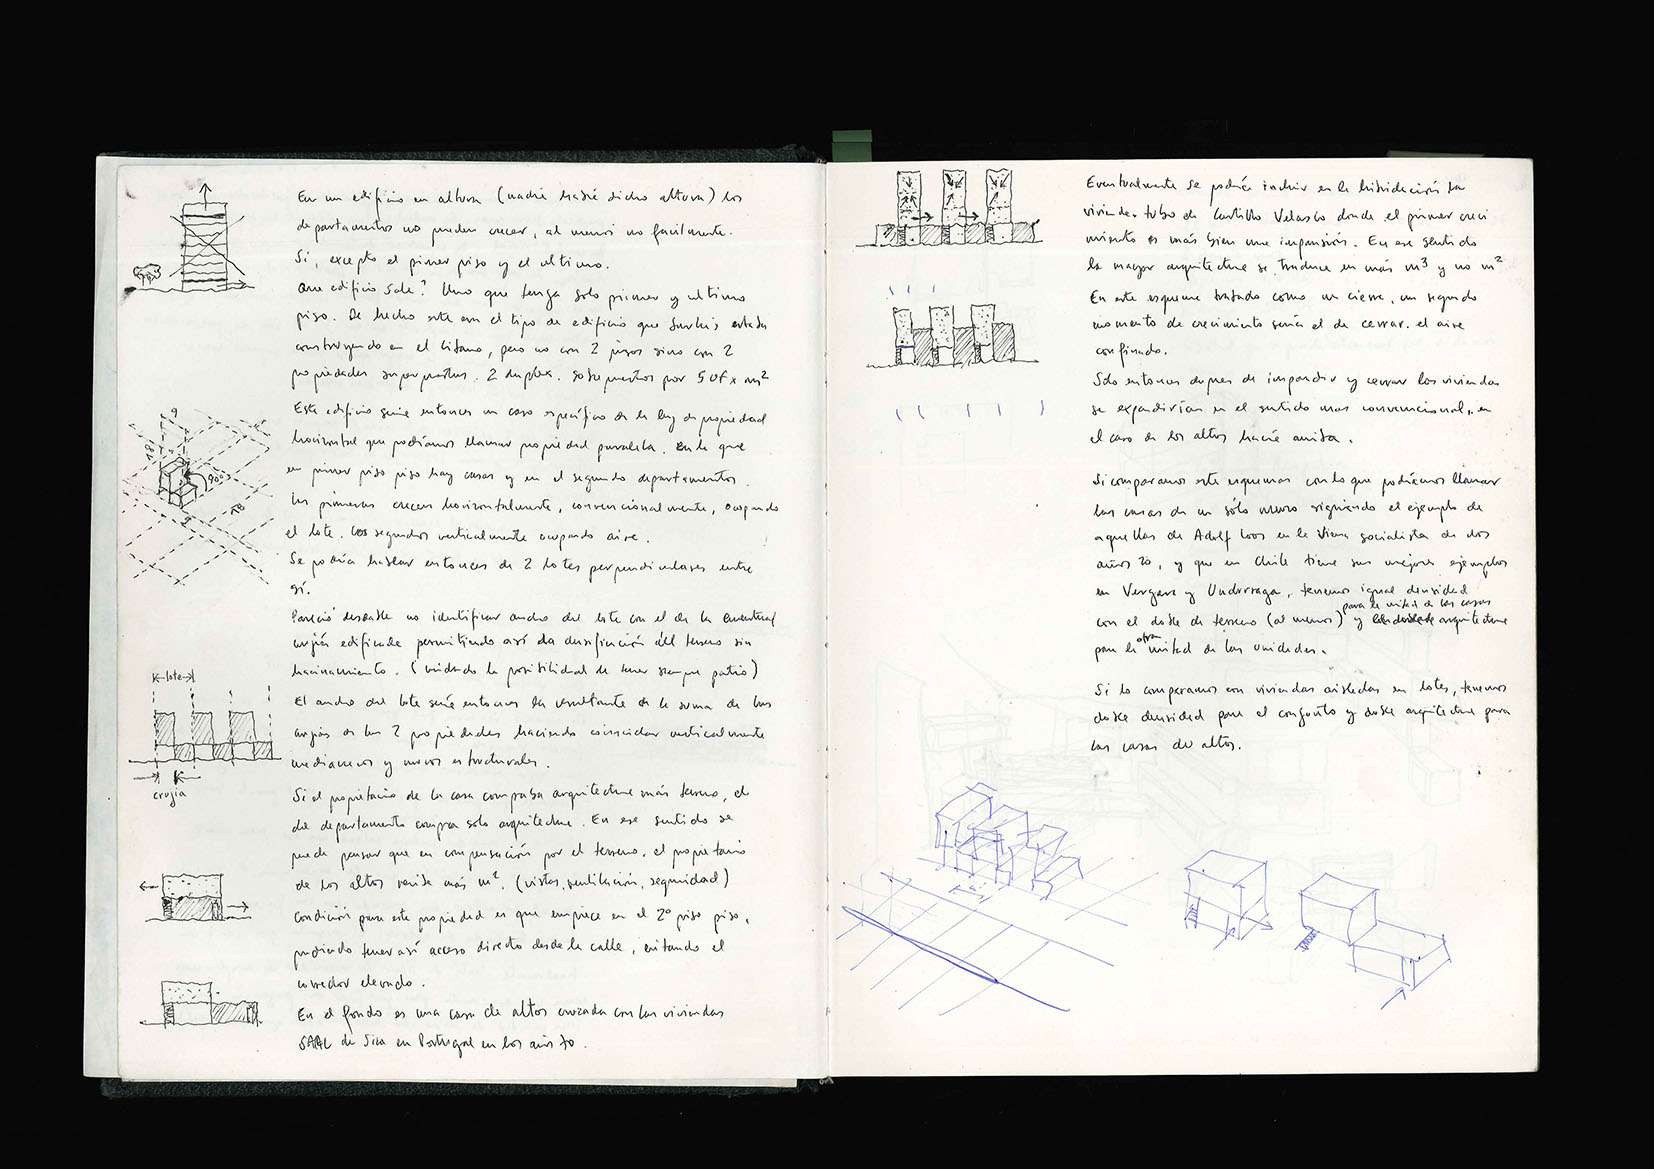 En un edificio en altura (nadie habría dicho altura) los
departamentos no pueden crecer, al menos no fácilmente.
Si, excepto el primer piso y el ultimo.
Que edificio sale? Uno que tenga solo primer y ultimo
piso. De hecho este era el tipo de edificio que estaba
construyendo en el pero no con 2 pisos sino con 2
propiedades superpuestas. 2 duplex. por 5 UF x m²
Este edificio sería entonces un caso específico de la ley de propiedad
horizontal que podríamos llamar propiedad paralela. En la que
en primer piso piso hay casas y en el segundo departamentos.
Las primeras crecen horizontalmente, convencionalmente, ocupando
el lote. Los segundos verticalmente ocupando aire.
Se podría hablar entonces de 2 lotes perpendiculares entre
sí.
Pareció deseable no identificar ancho del lote con el de la eventual
crujía edificada permitiendo así la densificación del terreno sin
hacinamiento. (cuidando la posibilidad de tener siempre patio)
El ancho del lote sería entonces la resultante de la suma de las
crujías de las 2 propiedades haciendo coincidir verticalmente
medianeros y muros estructurales.
Si el propietario de la casa compraba arquitectura más terreno, el
de departamento compra solo arquitectura. En ese sentido se
puede pensar que en compensación por el terreno, el propietario
de los altos recibe más m². (vistas, ventilación, seguridad)
Condición para esta propiedad es que empiece en el 2º piso piso,
pudiendo tener así acceso directo desde la calle, evitando el
corredor elevado.
En el fondo es una casa de altos cruzada con las viviendas
SAAL de Siza en Portugal en los años 70.
9
18
90°
9
18
lote
crujía
Eventualmente se podría incluir en la hibridación la
vivienda tubo de Castillo Velasco donde el primer creci
miento es más bien una impansión. En ese sentido
la mayor arquitectura se traduce en más m³ y no m²
En este esquema tratado como un cierre, un segundo
momento de crecimiento sería el de cerrar el aire
confinado.
Sólo entonces después de impandir y cerrar las viviendas
se expandirían en el sentido mas convencional, en
el caso de los altos hacia arriba.
Si comparamos este esquemas con lo que podríamos llamar
las casas de un sólo muro siguiendo el ejemplo de
aquellas de Adolf Loos en la Viena socialista de los
años 20, y que en Chile tiene sus mejores ejemplos
en Vergara y Undurraga, tenemos igual densidad
para la mitad de las casas
con el doble de terreno (al menos) y doble de arquitectura
otra
para la mitad de las unidades.
Si lo comparamos con viviendas aisladas en lotes, tenemos
doble densidad para el conjunto y doble arquitectura para
las casas de altos.